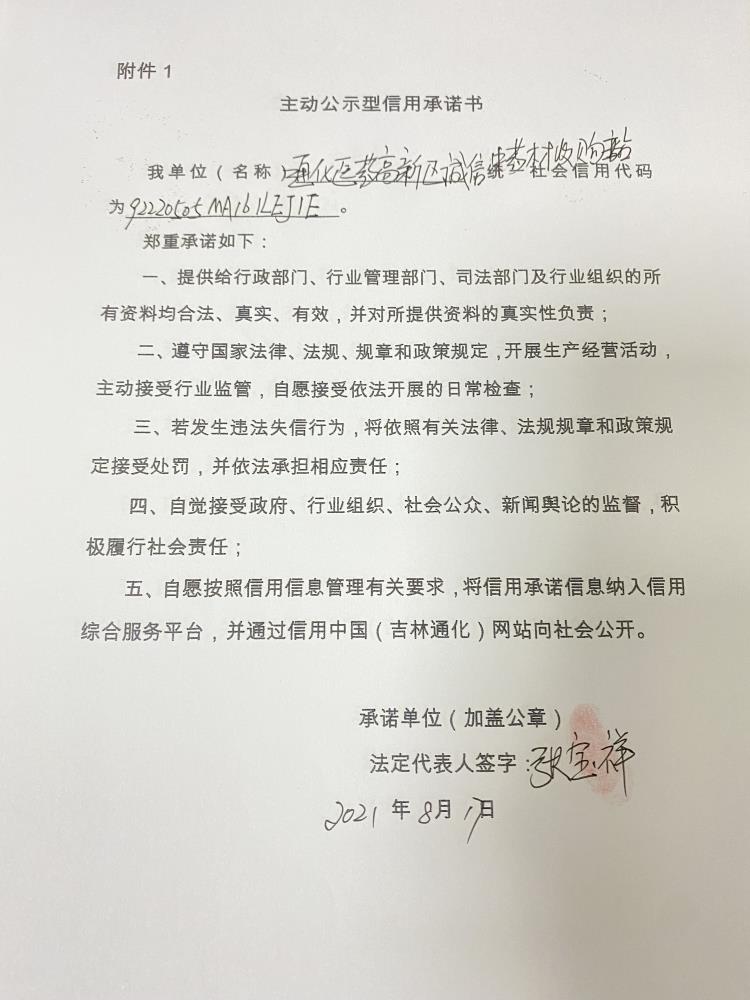 附件 1
主动公示型信用承诺书
我单位（名称）通化医药高新区诚信中药材收购站统一社会信用代码
为92220505MA161LEJ1E。
郑重承诺如下：
一、提供给行政部门、行业管理部门、司法部门及行业组织的所
有资料均合法、真实、有效，并对所提供资料的真实性负责；
二、遵守国家法律、法规、规章和政策规定，开展生产经营活动，
主动接受行业监管，自愿接受依法开展的日常检查；
三、若发生违法失信行为，将依照有关法律、法规规章和政策规
定接受处罚，并依法承担相应责任；
四、自觉接受政府、行业组织、社会公众、新闻舆论的监督，积
极履行社会责任；
五、自愿按照信用信息管理有关要求，将信用承诺信息纳入信用
综合服务平台，并通过信用中国（吉林通化）网站向社会公开。
承诺单位（加盖公章）
法定代表人签字：张宝祥
2021 年 8月 17日